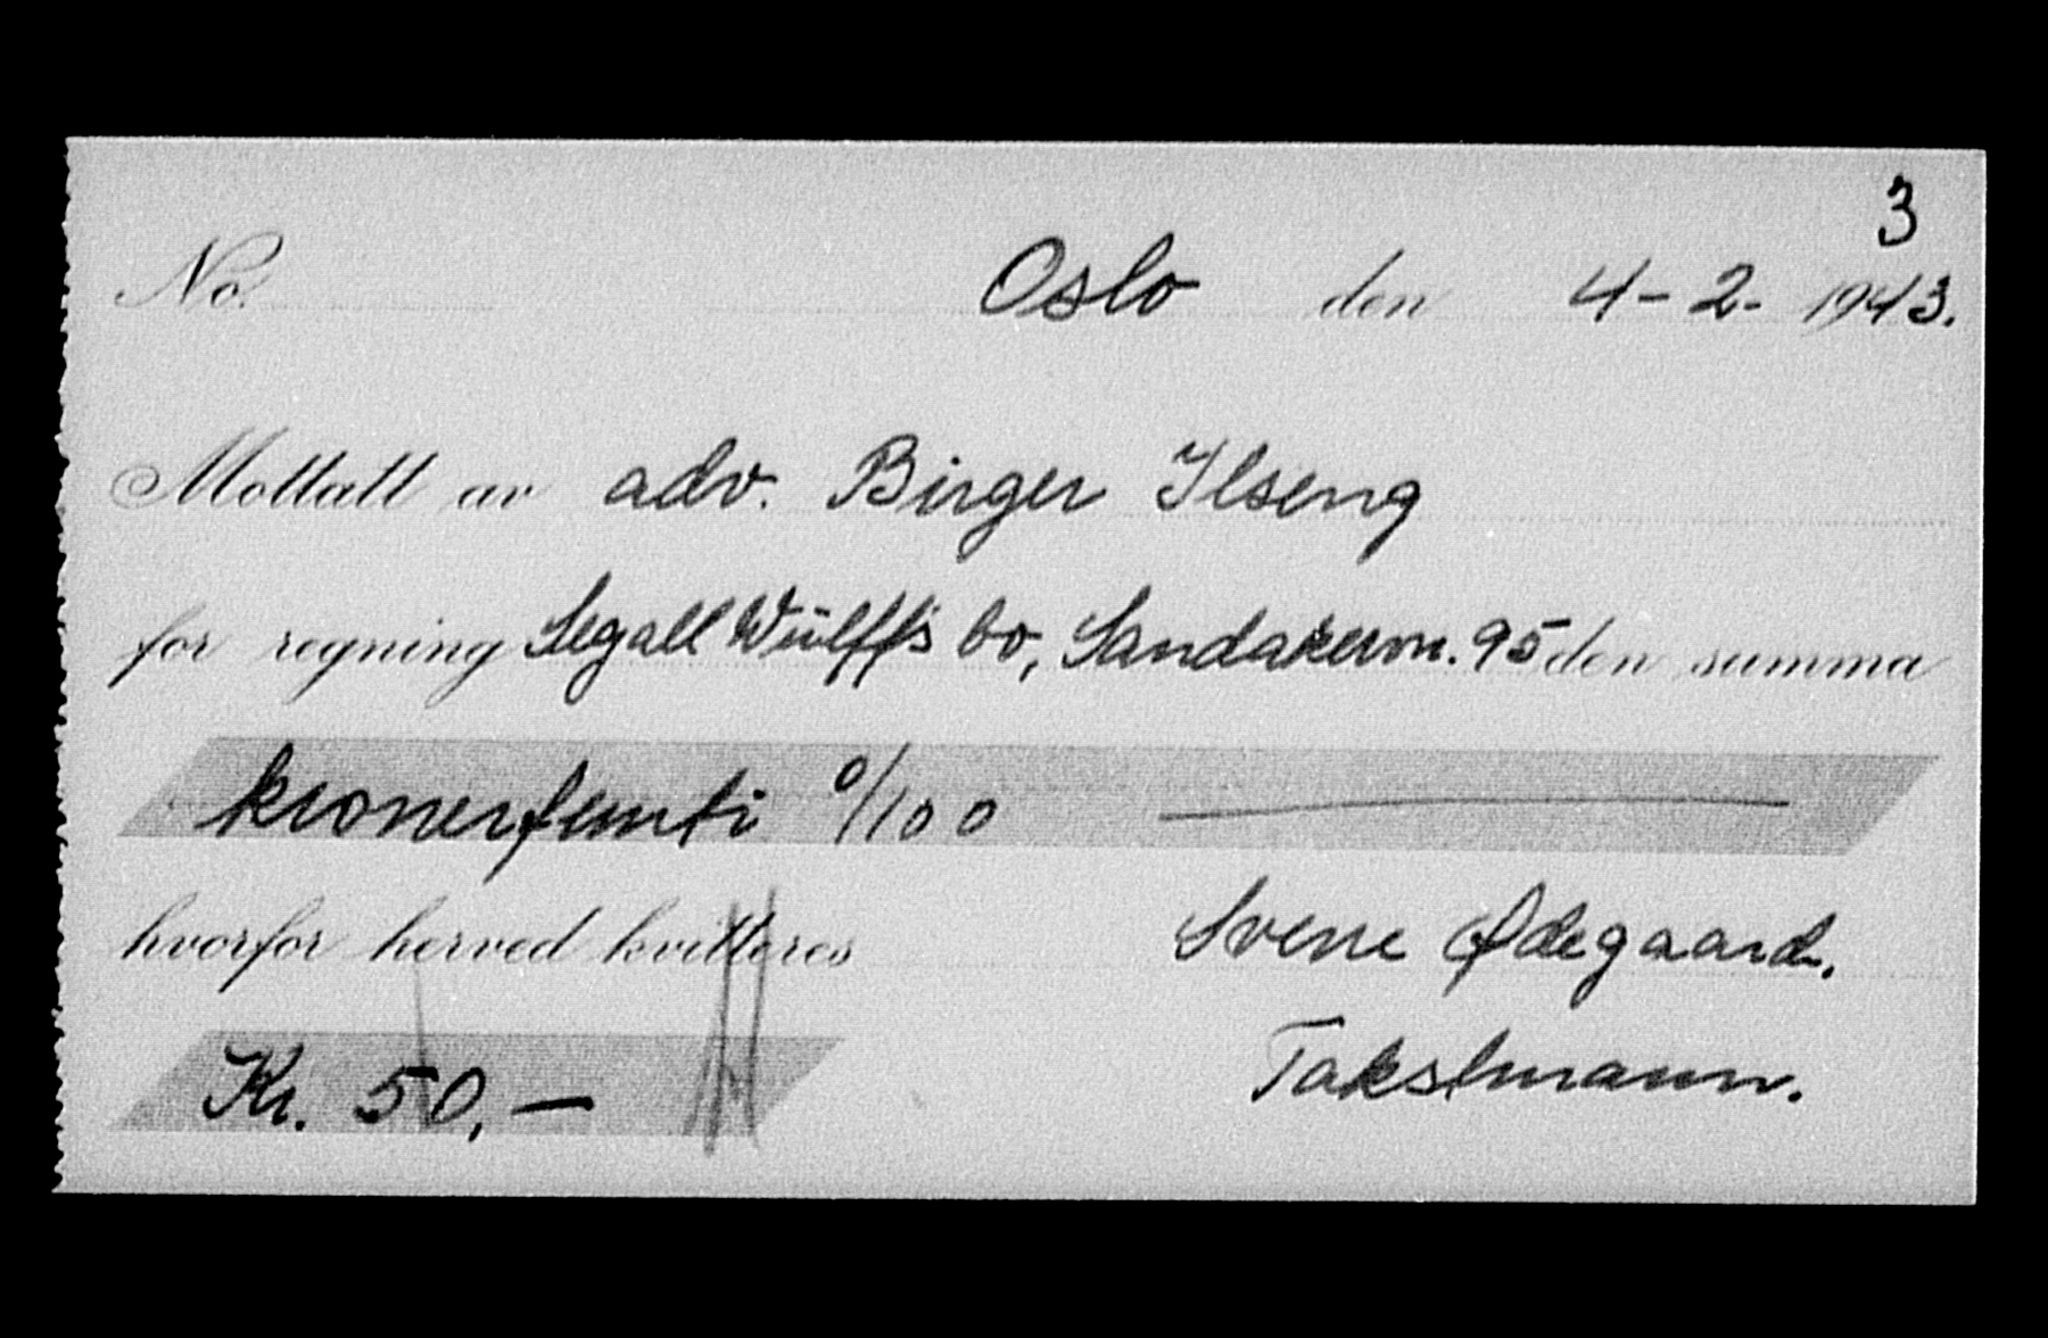 3
No. Oslo den 4-2-1943.
Mottatt av adv. Birger Ilseng
for regning Segall Wulff's bo, Sandakervn. 95 den summa
kronerfemti 0/100
hvorfor herved kvitteres Sverre Ødegaard.
Kr. 50,- Takstmann.